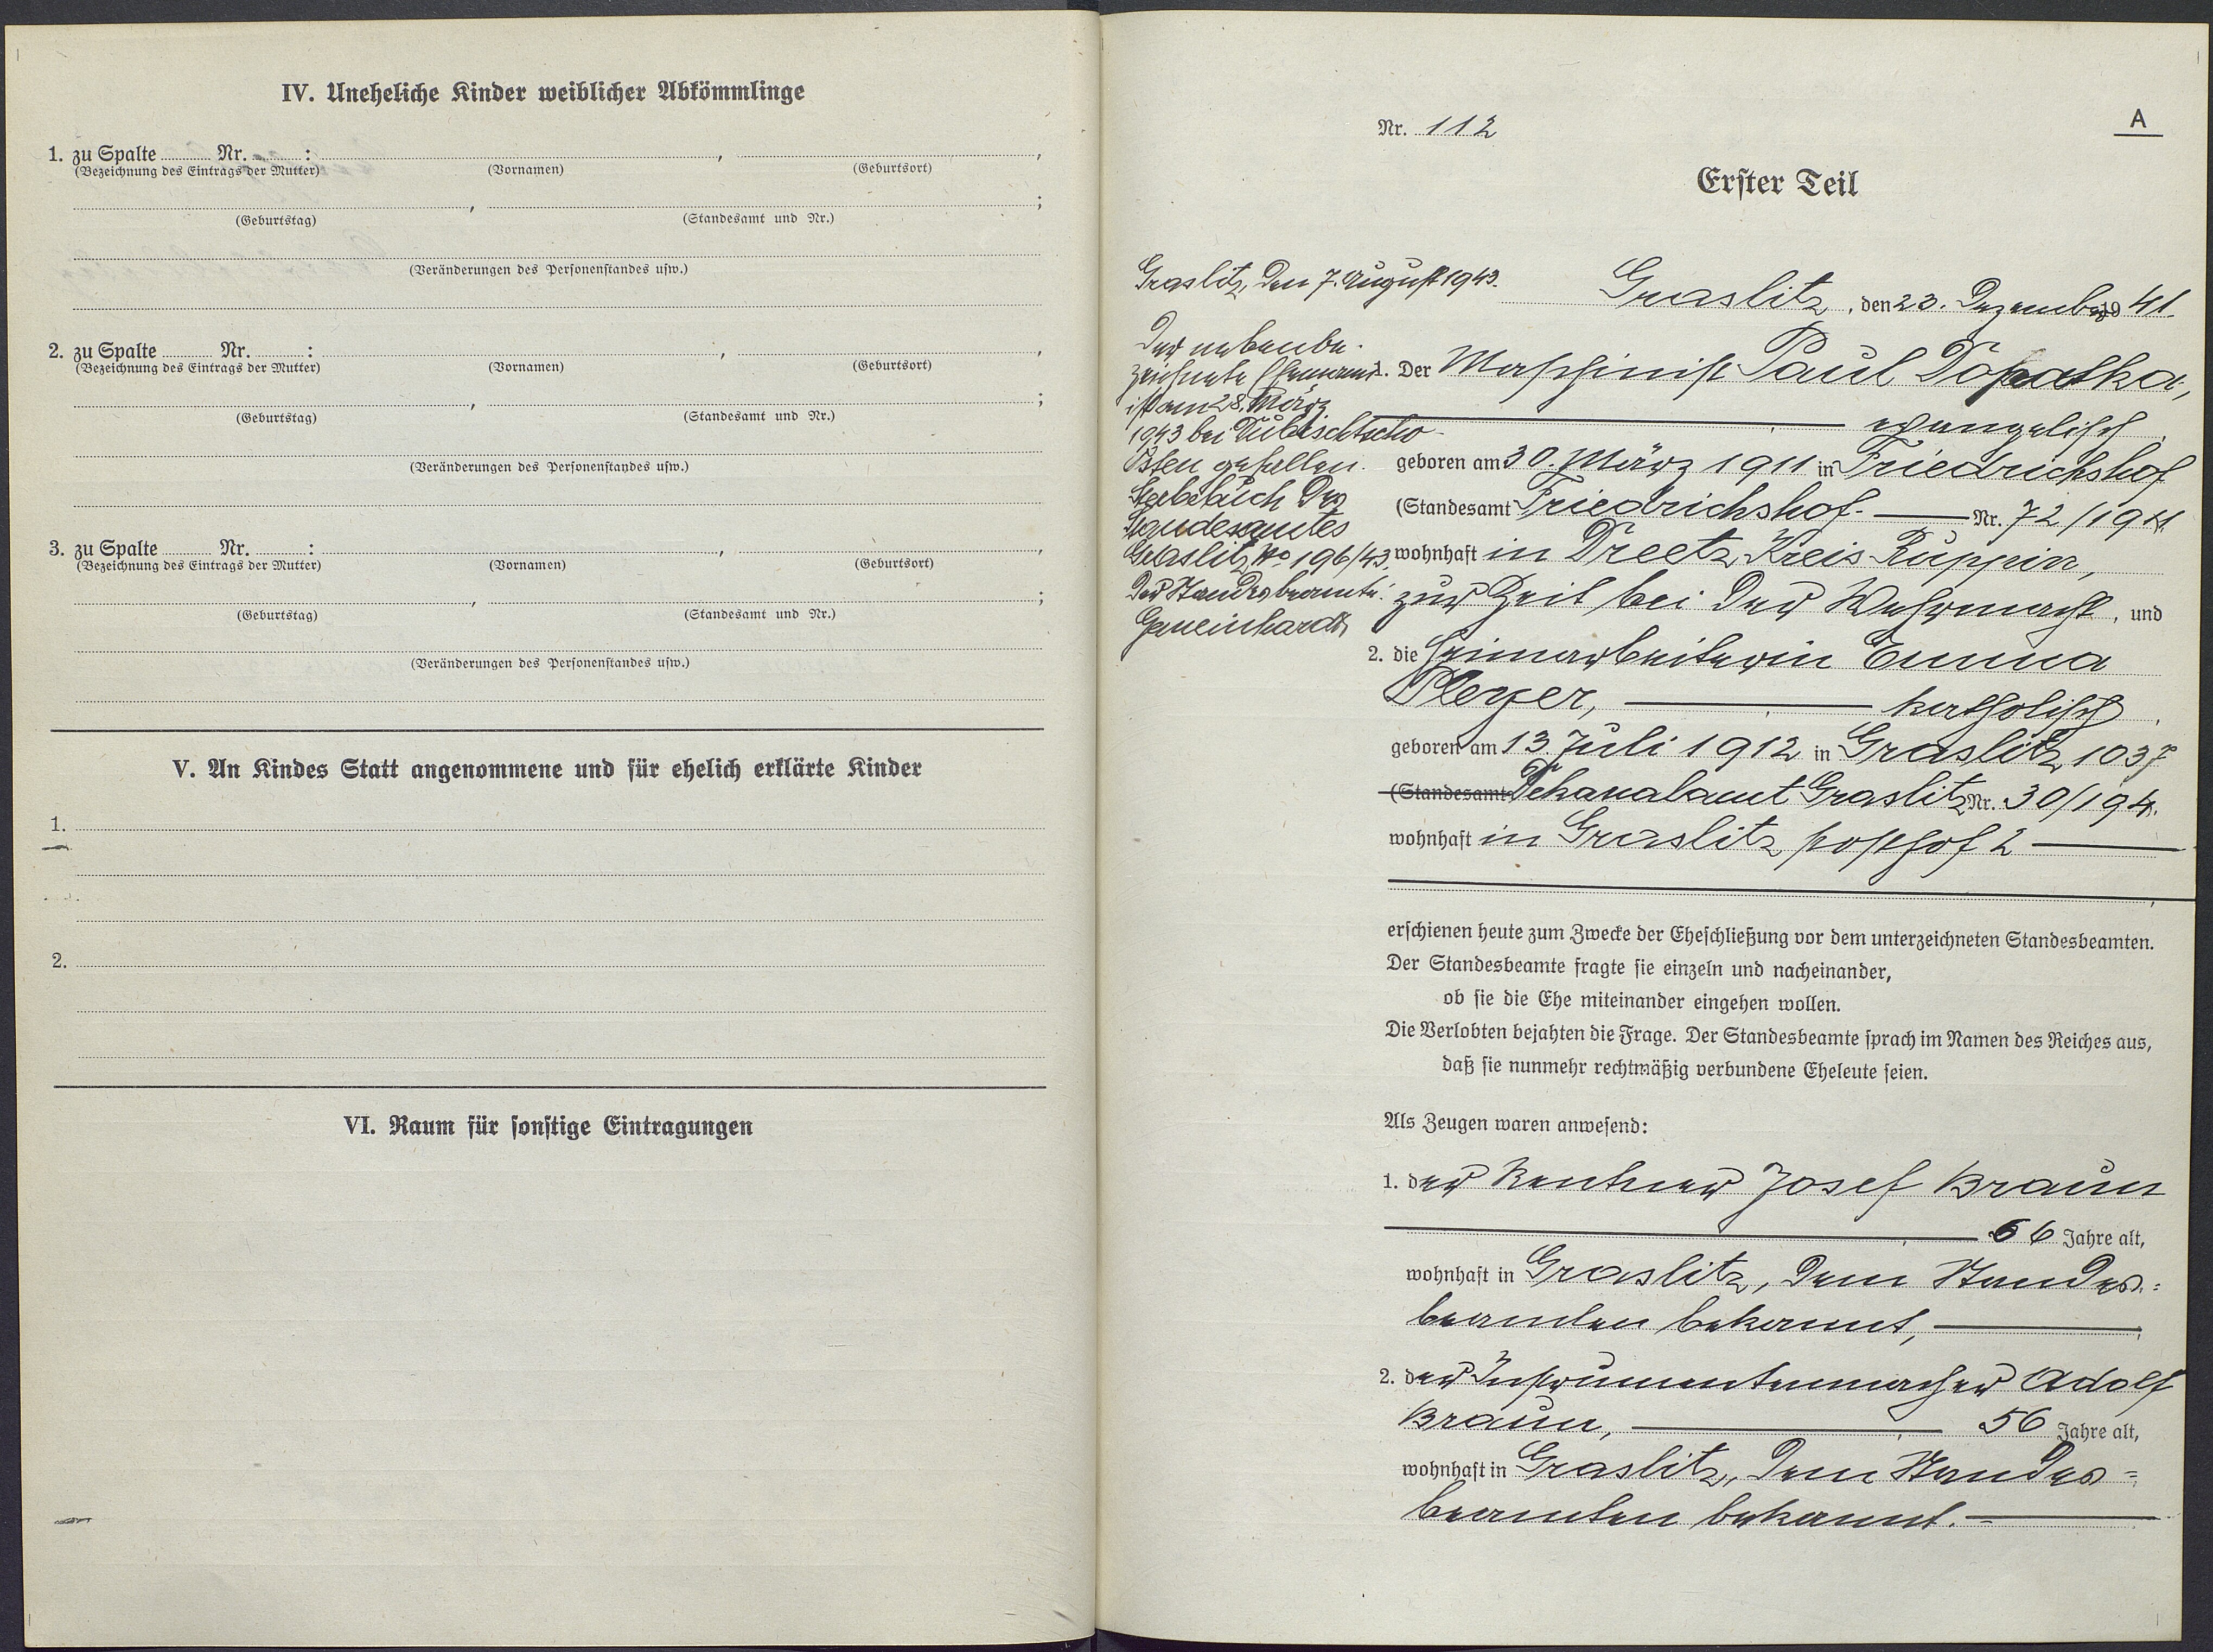 IV. Uneheliche Kinder weiblicher Abkömmlinge
1. zu Spalte ........ Nr. ........ : ........, ........,
(Bezeichnung des Eintrags der Mutter) (Vornamen) (Geburtsort)
........, ........;
(Geburtstag) (Standesamt und Nr.)
(Veränderungen des Personenstandes usw.)
2. zu Spalte ........ Nr. ........ : ........, ........,
(Bezeichnung des Eintrags der Mutter) (Vornamen) (Geburtsort)
........, ........;
(Geburtstag) (Standesamt und Nr.)
(Veränderungen des Personenstandes usw.)
3. zu Spalte ........ Nr. ........ : ........, ........,
(Bezeichnung des Eintrags der Mutter) (Vornamen) (Geburtsort)
........, ........;
(Geburtstag) (Standesamt und Nr.)
(Veränderungen des Personenstandes usw.)
V. An Kindes Statt angenommene und für ehelich erklärte Kinder
1.
2.
VI. Raum für sonstige Eintragungen
A
Nr. 112
Erster Teil
Graslitz, den 7. August 1943.
Der nebenbe-
zeichnete Ehemann
ist am 28. März
1943 bei
Osten gefallen.
Sterbebuch des
Standesamtes
Graslitz No 196/43.
Der Standesbeamte:
Gemeinhardt
Graslitz, den 23. Dezember 1941.
1. Der Maschinist Paul Dopatka,
evangelisch,
geboren am 30. März 1911 in Friedrichshof
(Standesamt Friedrichshof. Nr. 72/1911
wohnhaft in Dreetz, Kreis Ruppin,
zur Zeit bei der Wehrmacht, und
2. die Heimarbeiterin Emma
Pleyer, katholisch,
geboren am 13. Juli 1912 in Graslitz 1037
(Standesamt Dekanalamt Graslitz Nr. 30/194.
wohnhaft in Graslitz, Posthof 2
erschienen heute zum Zwecke der Eheschließung vor dem unterzeichneten Standesbeamten.
Der Standesbeamte fragte sie einzeln und nacheinander,
ob sie die Ehe miteinander eingehen wollen.
Die Verlobten bejahten die Frage. Der Standesbeamte sprach im Namen des Reiches aus,
daß sie nunmehr rechtmäßig verbundene Eheleute seien.
Als Zeugen waren anwesend:
1. der Rentner Josef Braun
66 Jahre alt,
wohnhaft in Graslitz, dem Standes=
beamten bekannt,
2. der Instrumentenmacher Adolf
Braun, 56 Jahre alt,
wohnhaft in Graslitz, dem Standes=
beamten bekannt.